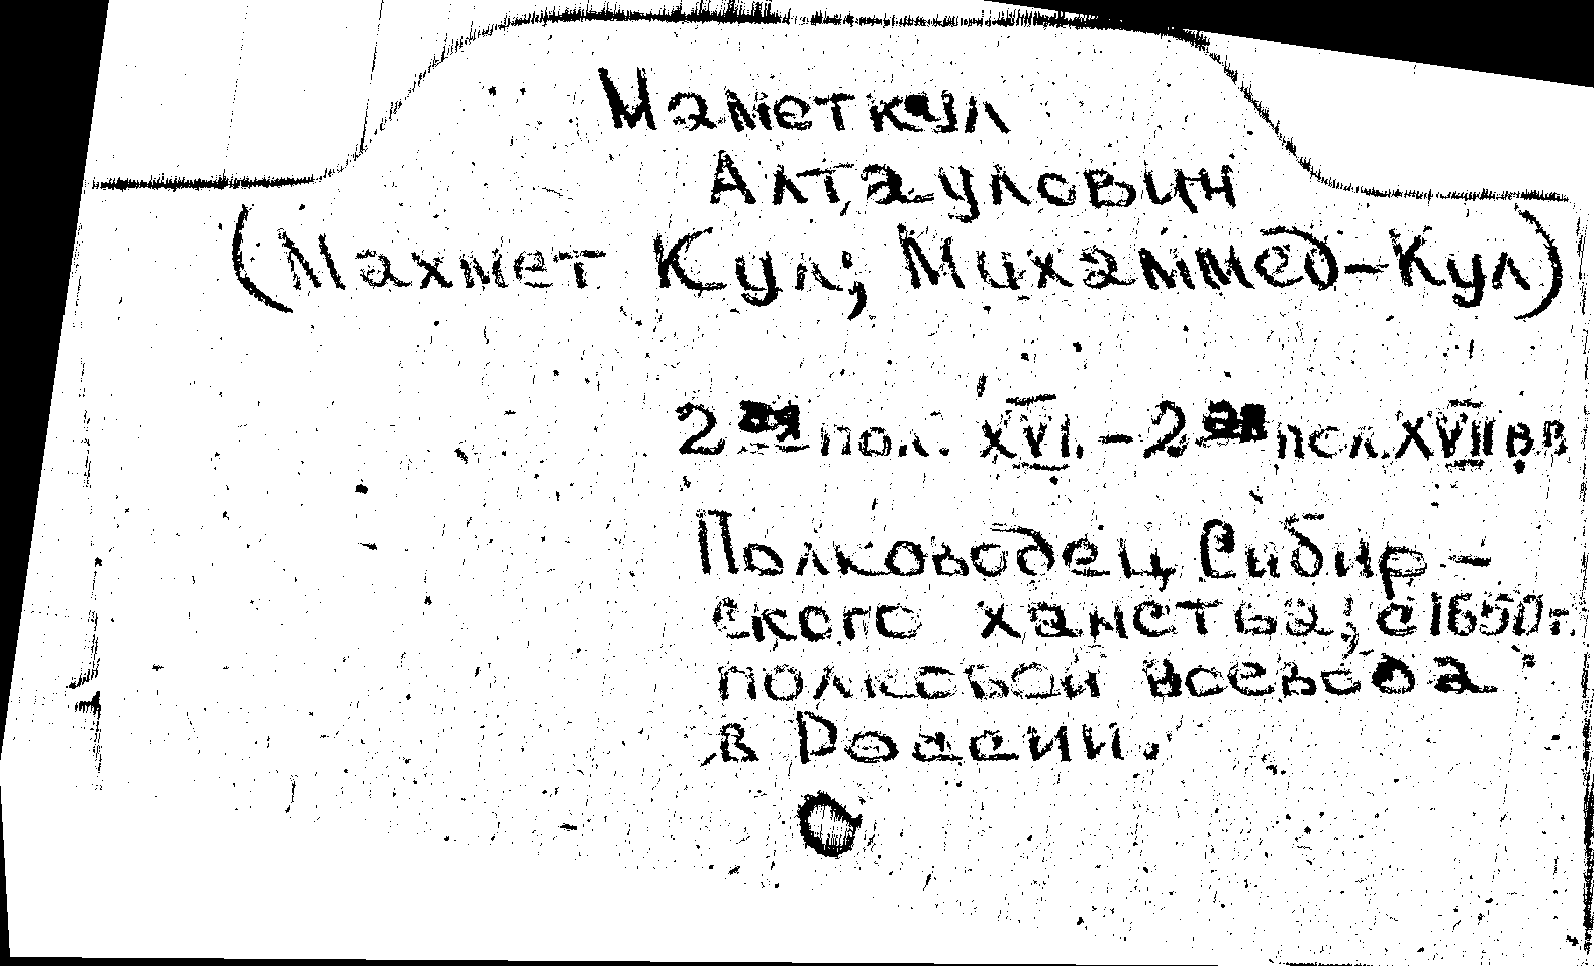 Маметкул
Алтаулович
(Махмет Кул; Мухаммед-Кул)
2ая пол. XVI. - 2ая пол. XVII в.в
Полководец Сибир-
ского ханства; с 1650 г.
полковой воевода
в России.